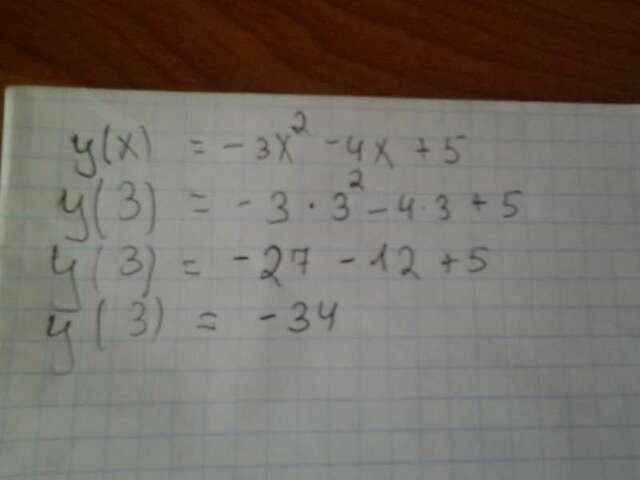 y(x) = -3x² -4x +5
y(3) = -3·3² -4·3 +5
y(3) = -27 -12 +5
y(3) = -34